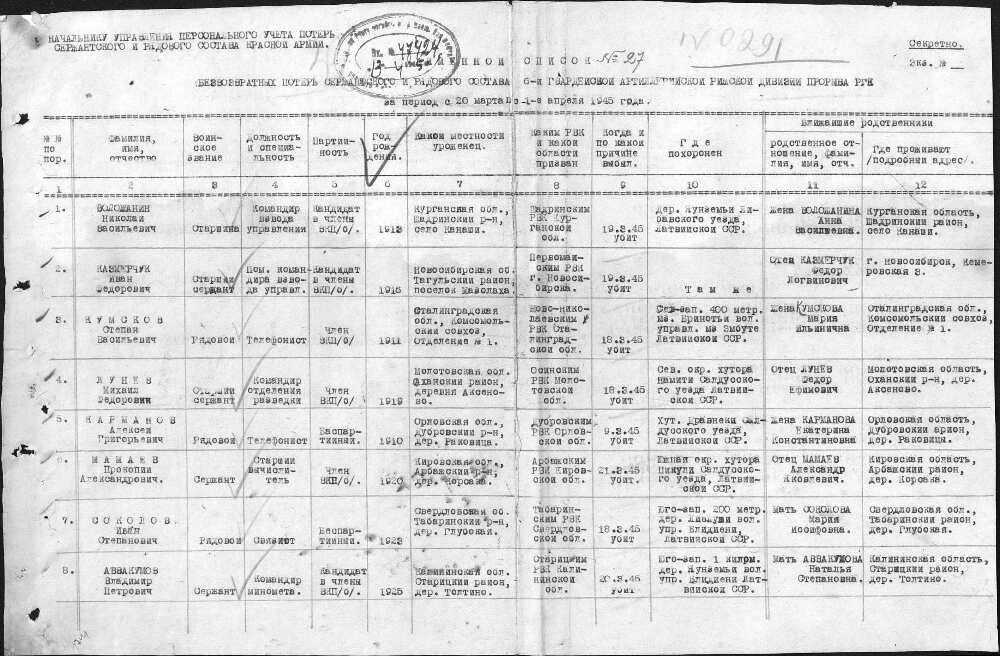 НАЧАЛЬНИКУ УПРАВЛЕНИЯ ПЕРСОНАЛЬНОГО УЧЕТА ПОТЕРЬ
СЕРЖАНТСКОГО И РЯДОВОГО СОСТАВА КРАСНОЙ АРМИИ.
№ 0291
Секретно.
Экз. №
ИМЕННОЙ СПИСОК № 27
БЕЗВОЗВРАТНЫХ ПОТЕРЬ СЕРЖАНТСКОГО И РЯДОВОГО СОСТАВА 6-й ГВАРДЕЙСКОЙ АРТИЛЛЕРИЙСКОЙ РИЖСКОЙ ДИВИЗИИ ПРОРЫВА РГК
за период с 20 марта по 1-е апреля 1945 года.
№№ по пор.
Фамилия, имя, отчество
Воинское звание
Должность и специальность
Партийность
Год рождения.
Какой местности уроженец.
Каким РВК и какой области призван
Когда и по какой причине выбыл.
Где похоронен
Ближайшие родственники
родственное отношение, фамилия, имя, отч.
Где проживают /подробный адрес/.
1 2 3 4 5 6 7 8 9 10 11 12
1. ВОЛОШАНИН Николай Васильевич Старшина Командир взвода управления Кандидат в члены ВКП/б/. 1913 Курганская обл., Шадринский р-н, село Канаши. Шадринским РВК Курганской обл. 19.3.45 убит дер. Кунземьи Либавского уезда, Латвийской ССР. Жена ВОЛОШАНИНА Анна Васильевна. Курганская область, Шадринский район, село Канаши.
2. КАЗМЕРЧУК Иван Федорович Старший сержант Пом. командира взвода управл. Кандидат в члены ВКП/б/. 1915 Новосибирская об. Тагульский район, поселок Маволаха. Первомайским РВК г. Новосибирска. 19.3.45 убит Там же Отец КАЗМЕРЧУК Федор Логвинович г. Новосибирск, Кемеровская 3.
3. КУМСКОВ Степан Васильевич Рядовой Телефонист Член ВКП/б/ 1911 Сталинградская обл., Комсомольский совхоз, Отделение № 1. Ново-николаевским РВК Сталинградской обл. 18.3.45 убит Сев-зап. 400 метр. мз. Бринотьи вол. управл. мз Эмбуте Латвийской ССР. Жена КУМСКОВА Мария Ильинична Сталинградская обл, Комсомольский совхоз, Отделение № 1.
4. ЛУНЕВ Михаил Федорович Старший сержант Командир отделения разведки Член ВКП/б/ 1919 Молотовская обл. Оханский район, деревня Аксеново. Осинским РВК Молотовской обл. 18.3.45 убит Сев. окр. хутора Намити Салдусского уезда Латвийской ССР. Отец ЛУНЕВ Федор Ефимович Молотовская область, Оханский р-н, дер. Аксеново.
5. КАРМАНОВ Алексей Григорьевич Рядовой Телефонист Беспартийный. 1910 Орловская обл., Дубровский р-н, дер. Раковица. Дубровским РВК Орловской обл. 9.3.45 убит Хут. Дравнеки Салдусского уезда, Латвийской ССР. Жена КАРМАНОВА Екатерина Константиновна Орловская область, Дубровский район, дер. Раковицы.
6. МАМАЕВ Прокопий Александрович. Сержант Старший вычислитель Член ВКП/б/. 1920 Кировская обл., Арбажский р-н, дер. Корсака. Арбажским РВК Кировской обл. 21.3.45 убит Южная окр. хутора Пикули Салдусского уезда, Латвийской ССР. Отец МАМАЕВ Александр Яковлевич. Кировская область, Арбажский район, дер. Корсака.
7. СОКОЛОВ. Иван Степанович Рядовой Связист Беспартийный. 1923 Свердловская об. Табаринский р-н, дер. Глубокая. Табаринским РВК Свердловской обл. 18.3.45 убит Юго-зап. 200 метр. дер. вол. упр. Блидиени, Латвийской ССР. Мать СОКОЛОВА Мария Иосифовна. Свердловская обл., Табаринский район, дер. Глубокая.
8. АВВАКУМОВ Владимир Петрович Сержант Командир миномета. Кандидат в члены ВКП/б/. 1925 Калининская обл. Старицкий район, дер. Толтино. Старицким РВК Калининской обл. 20.3.45 убит Юго-зап. 1 килом. дер. Кунземьи вол. упр. Блидиени Латвийской ССР. Мать АВВАКУМОВА Наталья Степановна. Калининская область, Старицкий район, дер. Толтино.